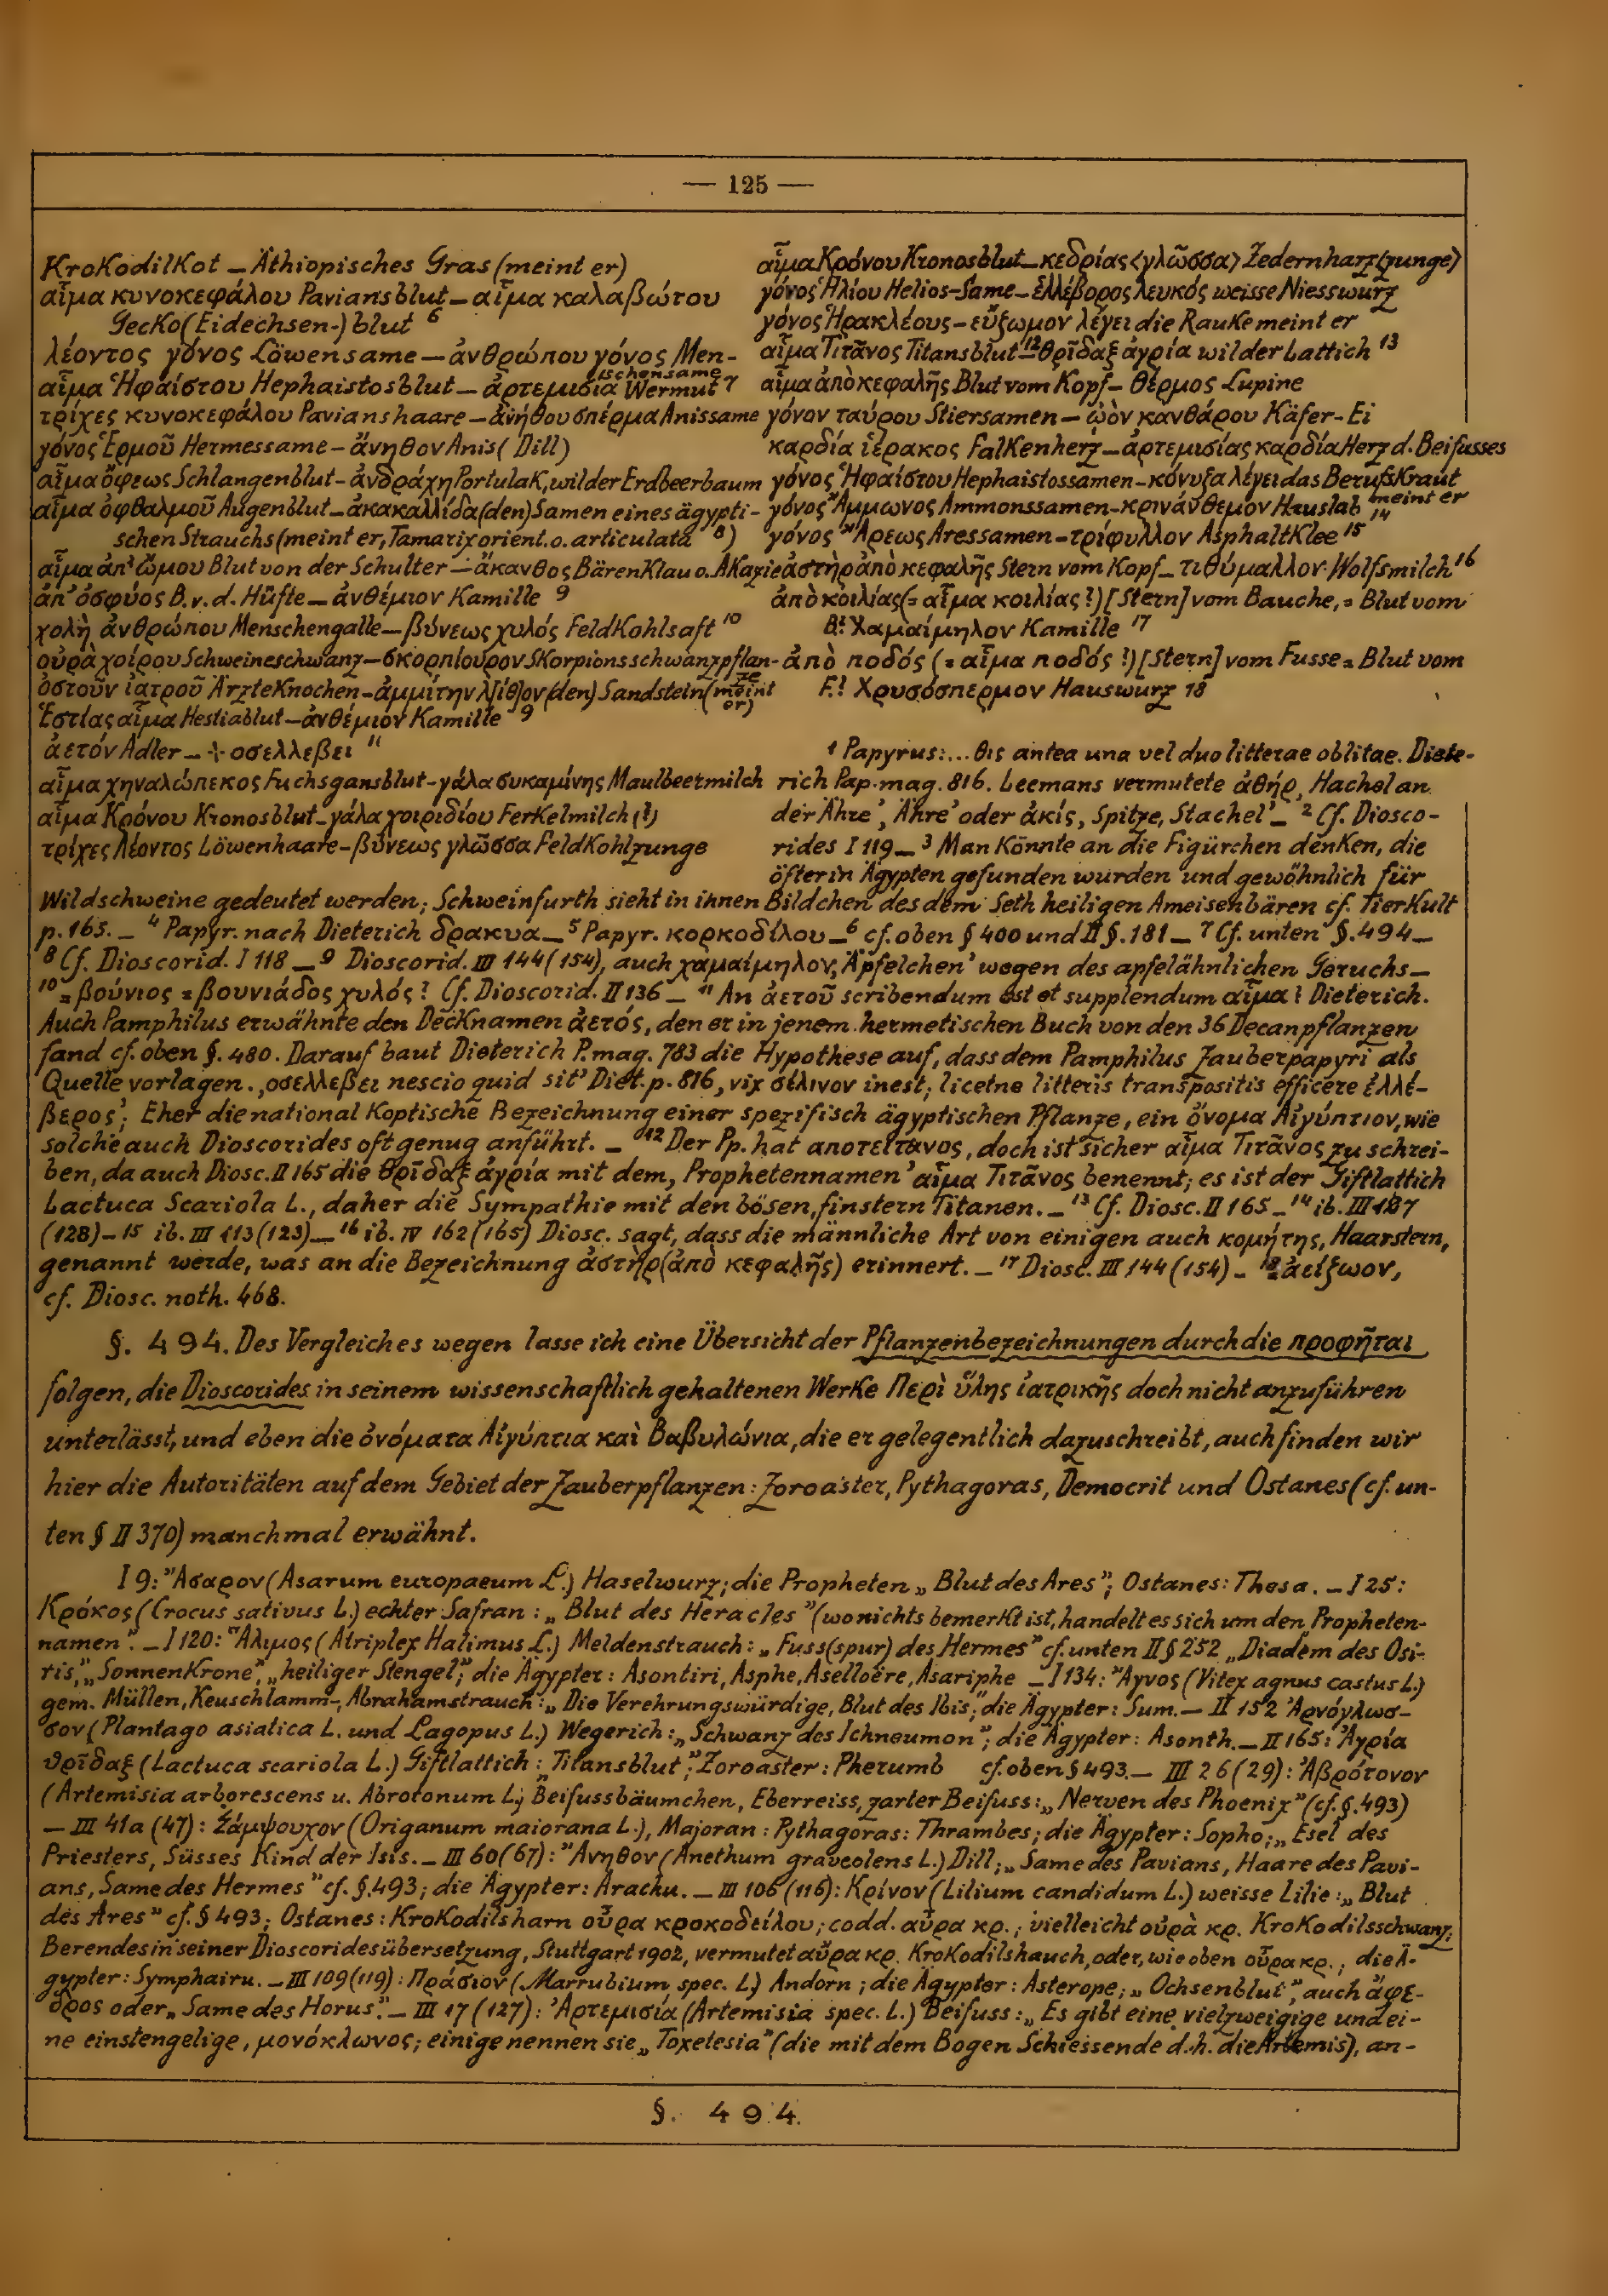 — 125 —
Krokodilkot – Äthiopisches Gras (meint er)
αἷμα κυνοκεφάλου Paviansblut – αἷμα καλαβώτου
Gecko (Eidechsen-) blut 6
λέοντος γόνος Löwensame – ἀνθρώπου γόνος Men-
schensame
αἷμα Ἡφαίστου Hephaistosblut – ἀρτεμισία Wermut 7
τρίχες κυνοκεφάλου Pavianshaare – ἀνήθου σπέρμα Anissame
γόνος Ἑρμοῦ Hermessame – ἄνηθον Anis (Dill)
αἷμα ὄφεως Schlangenblut – ἀνδράχη Portulak, wilder Erdbeerbaum
αἷμα ὀφθαλμοῦ Augenblut – ἀκακαλλίδα (den) Samen eines ägypti-
schen Strauchs (meint er, Tamarix orient. o. articulata 8)
αἷμα ἀπ' ὤμου Blut von der Schulter – ἄκανθος Bärenklau o. Akazie
ἀπ' ὀσφύος B. v. d. Hüfte – ἀνθέμιον Kamille 9
χολὴ ἀνθρώπου Menschengalle – βύνεως χυλός Feldkohlsaft 10
οὐρὰ χοίρου Schweineschwanz – σκορπίουρον Skorpionsschwanzpflan-
ze
ὀστοῦν ἰατροῦ Ärzteknochen – ἀμμίτην λ[ίθ]ον (den) Sandstein (meint
er)
Ἑστίας αἷμα Hestiablut – ἀνθέμιον Kamille 9
ἀετόν Adler – ÷ οσελλεβει 11
αἷμα χηναλώπεκος Fuchsgansblut – γάλα συκαμίνης Maulbeermilch
αἷμα Κρόνου Kronosblut – γάλα χοιριδίου Ferkelmilch (!)
τρίχες λέοντος Löwenhaare – βύνεως γλῶσσα Feldkohlzunge
αἷμα Κρόνου Kronosblut – κεδρίας <γλῶσσα> Zedernharz(zunge)
γόνος Ἡλίου Helios-Same – ἑλλέβορος λευκός weisse Niesswurz
γόνος Ἡρακλέους – εὔζωμον λέγει die Rauke meint er
αἷμα Τιτᾶνος Titansblut 12 – θρῖδαξ ἀγρία wilder Lattich 13
αἷμα ἀπὸ κεφαλῆς Blut vom Kopf – θέρμος Lupine
γόνον ταύρου Stiersamen – ὠὸν κανθάρου Käfer-Ei
καρδία ἱέρακος Falkenherz – ἀρτεμισίας καρδία Herz d. Beifusses
γόνος Ἡφαίστου Hephaistossamen – κόνυζα λέγει das Berufskraut
meint er
γόνος Ἄμμωνος Ammonssamen – κρινάνθεμον Hauslab 14
γόνος Ἄρεως Aressamen – τρίφυλλον Asphaltklee 15
ἀστὴρ ἀπὸ κεφαλῆς Stern vom Kopf – τιθύμαλλον Wolfsmilch 16
ἀπὸ κοιλίας (= αἷμα κοιλίας?) [Stern] vom Bauche, = Blut vom
B.! Χαμαίμηλον Kamille 17
ἀπὸ ποδός (= αἷμα ποδός!) [Stern] vom Fusse = Blut vom
F.! Χρυσόσπερμον Hauswurz 18
1 Papyrus: ... θις antea una vel duo litterae oblitae. Diete-
rich Pap. mag. 816. Leemans vermutete ἀθήρ, Hachel an
der Ähre', Ähre' oder ἀκίς, Spitze, Stachel' – 2 Cf. Diosco-
rides I 119 – 3 Man könnte an die Figürchen denken, die
öfter in Ägypten gefunden wurden und gewöhnlich für
Wildschweine gedeutet werden; Schweinfurth sieht in ihnen Bildchen des dem Seth heiligen Ameisenbären cf. Tierkult
p. 165. – 4 Papyr. nach Dieterich δρακυα – 5 Papyr. κορκοδίλου – 6 cf. oben § 400 und II §. 181 – 7 Cf. unten §. 494 –
8 Cf. Dioscorid. I 118 – 9 Dioscorid. III 144 (154), auch χαμαίμηλον, Äpfelchen' wegen des apfelähnlichen Geruchs –
10 = βούνιος = βουνιάδος χυλός? Cf. Dioscorid. II 136 – 11 An ἀετοῦ scribendum est et supplendum αἷμα? Dieterich.
Auch Pamphilus erwähnte den Decknamen ἀετός, den er in jenem hermetischen Buch von den 36 Decanpflanzen
fand cf. oben §. 480. Darauf baut Dieterich P. mag. 783 die Hypothese auf, dass dem Pamphilus Zauberpapyri als
Quelle vorlagen. ‚οσελλεβει nescio quid sit' Diet. p. 816, vix σέλινον inest; licetne litteris transpositis efficere ἑλλέ-
βερος'; Eher die national koptische Bezeichnung einer spezifisch ägyptischen Pflanze, ein ὄνομα Αἰγύπτιον, wie
solche auch Dioscorides oft genug anführt. – 12 Der Pp. hat αποτειτανος, doch ist sicher αἷμα Τιτᾶνος zu schrei-
ben, da auch Diosc. II 165 die θρῖδαξ ἀγρία mit dem ‚Prophetennamen' αἷμα Τιτᾶνος benennt; es ist der Giftlattich
Lactuca Scariola L., daher die Sympathie mit den bösen, finstern Titanen. – 13 Cf. Diosc. II 165 – 14 ib. III 127
(128) – 15 ib. III 113 (123) – 16 ib. IV 162 (165) Diosc. sagt, dass die männliche Art von einigen auch κομήτης, Haarstern,
genannt werde, was an die Bezeichnung ἀστὴρ (ἀπὸ κεφαλῆς) erinnert. – 17 Diosc. III 144 (154) – 18 = ἀείζωον,
cf. Diosc. noth. 468.
§. 494. Des Vergleiches wegen lasse ich eine Übersicht der Pflanzenbezeichnungen durch die προφῆται
folgen, die Dioscorides in seinem wissenschaftlich gehaltenen Werke Περὶ ὕλης ἰατρικῆς doch nicht anzuführen
unterlässt, und eben die ὀνόματα Αἰγύπτια καὶ Βαβυλώνια, die er gelegentlich dazuschreibt, auch finden wir
hier die Autoritäten auf dem Gebiet der Zauberpflanzen: Zoroaster, Pythagoras, Democrit und Ostanes (cf. un-
ten § II 370) manchmal erwähnt.
I 9: Ἄσαρον (Asarum europaeum L.) Haselwurz; die Propheten „Blut des Ares"; Ostanes: Thesa. – I 25:
Κρόκος (Crocus sativus L.) echter Safran: „Blut des Heracles" (wo nichts bemerkt ist, handelt es sich um den Propheten-
namen". – I 120: Ἅλιμος (Atriplex Halimus L.) Meldenstrauch: „Fuss(spur) des Hermes" cf. unten II § 252 „Diadem des Osi-
ris", „Sonnenkrone", „heiliger Stengel"; die Ägypter: Asontiri, Asphe, Aselloëre, Asariphe – I 134: Ἄγνος (Vitex agnus castus L.)
gem. Müllen, Keuschlamm-, Abrahamstrauch: „Die Verehrungswürdige, Blut des Ibis"; die Ägypter: Sum. – II 152 Ἀρνόγλωσ-
σον (Plantago asiatica L. und Lagopus L.) Wegerich: „Schwanz des Ichneumon"; die Ägypter: Asonth. – II 165: Ἀγρία
θρῖδαξ (Lactuca scariola L.) Giftlattich: „Titansblut"; Zoroaster: Pherumb cf. oben § 493. – III 26 (29): Ἀβρότονον
(Artemisia arborescens u. Abrotonum L.) Beifussbäumchen, Eberreiss, zarter Beifuss: „Nerven des Phoenix" (cf. §. 493)
– III 41a (47): Σάμψουχον (Origanum maiorana L.), Majoran: Pythagoras: Thrambes; die Ägypter: Sopho; „Esel des
Priesters, Süsses Kind der Isis. – III 60 (67): Ἄνηθον (Anethum graveolens L.) Dill; „Same des Pavians, Haare des Pavi-
ans, Same des Hermes" cf. §. 493; die Ägypter: Arachu. – III 106 (116): Κρίνον (Lilium candidum L.) weisse Lilie: „Blut
des Ares" cf. § 493; Ostanes: Krokodilsharn οὖρα κροκοδείλου; codd. αὖρα κρ.; vielleicht οὐρὰ κρ. Krokodilsschwanz;
Berendes in seiner Dioscoridesübersetzung, Stuttgart 1902, vermutet αὔρα κρ. Krokodilshauch, oder, wie oben οὖρα κρ.; die Ä-
gypter: Symphairu. – III 109 (119): Πράσιον (Marrubium spec. L.) Andorn; die Ägypter: Asterope; „Ochsenblut", auch ἄφε-
δρος oder „Same des Horus". – III 17 (127): Ἀρτεμισία (Artemisia spec. L.) Beifuss: „Es gibt eine vielzweigige und ei-
ne einstengelige, μονόκλωνος; einige nennen sie „Toxetesia" (die mit dem Bogen Schiessende d. h. die Artemis), an-
§. 494.